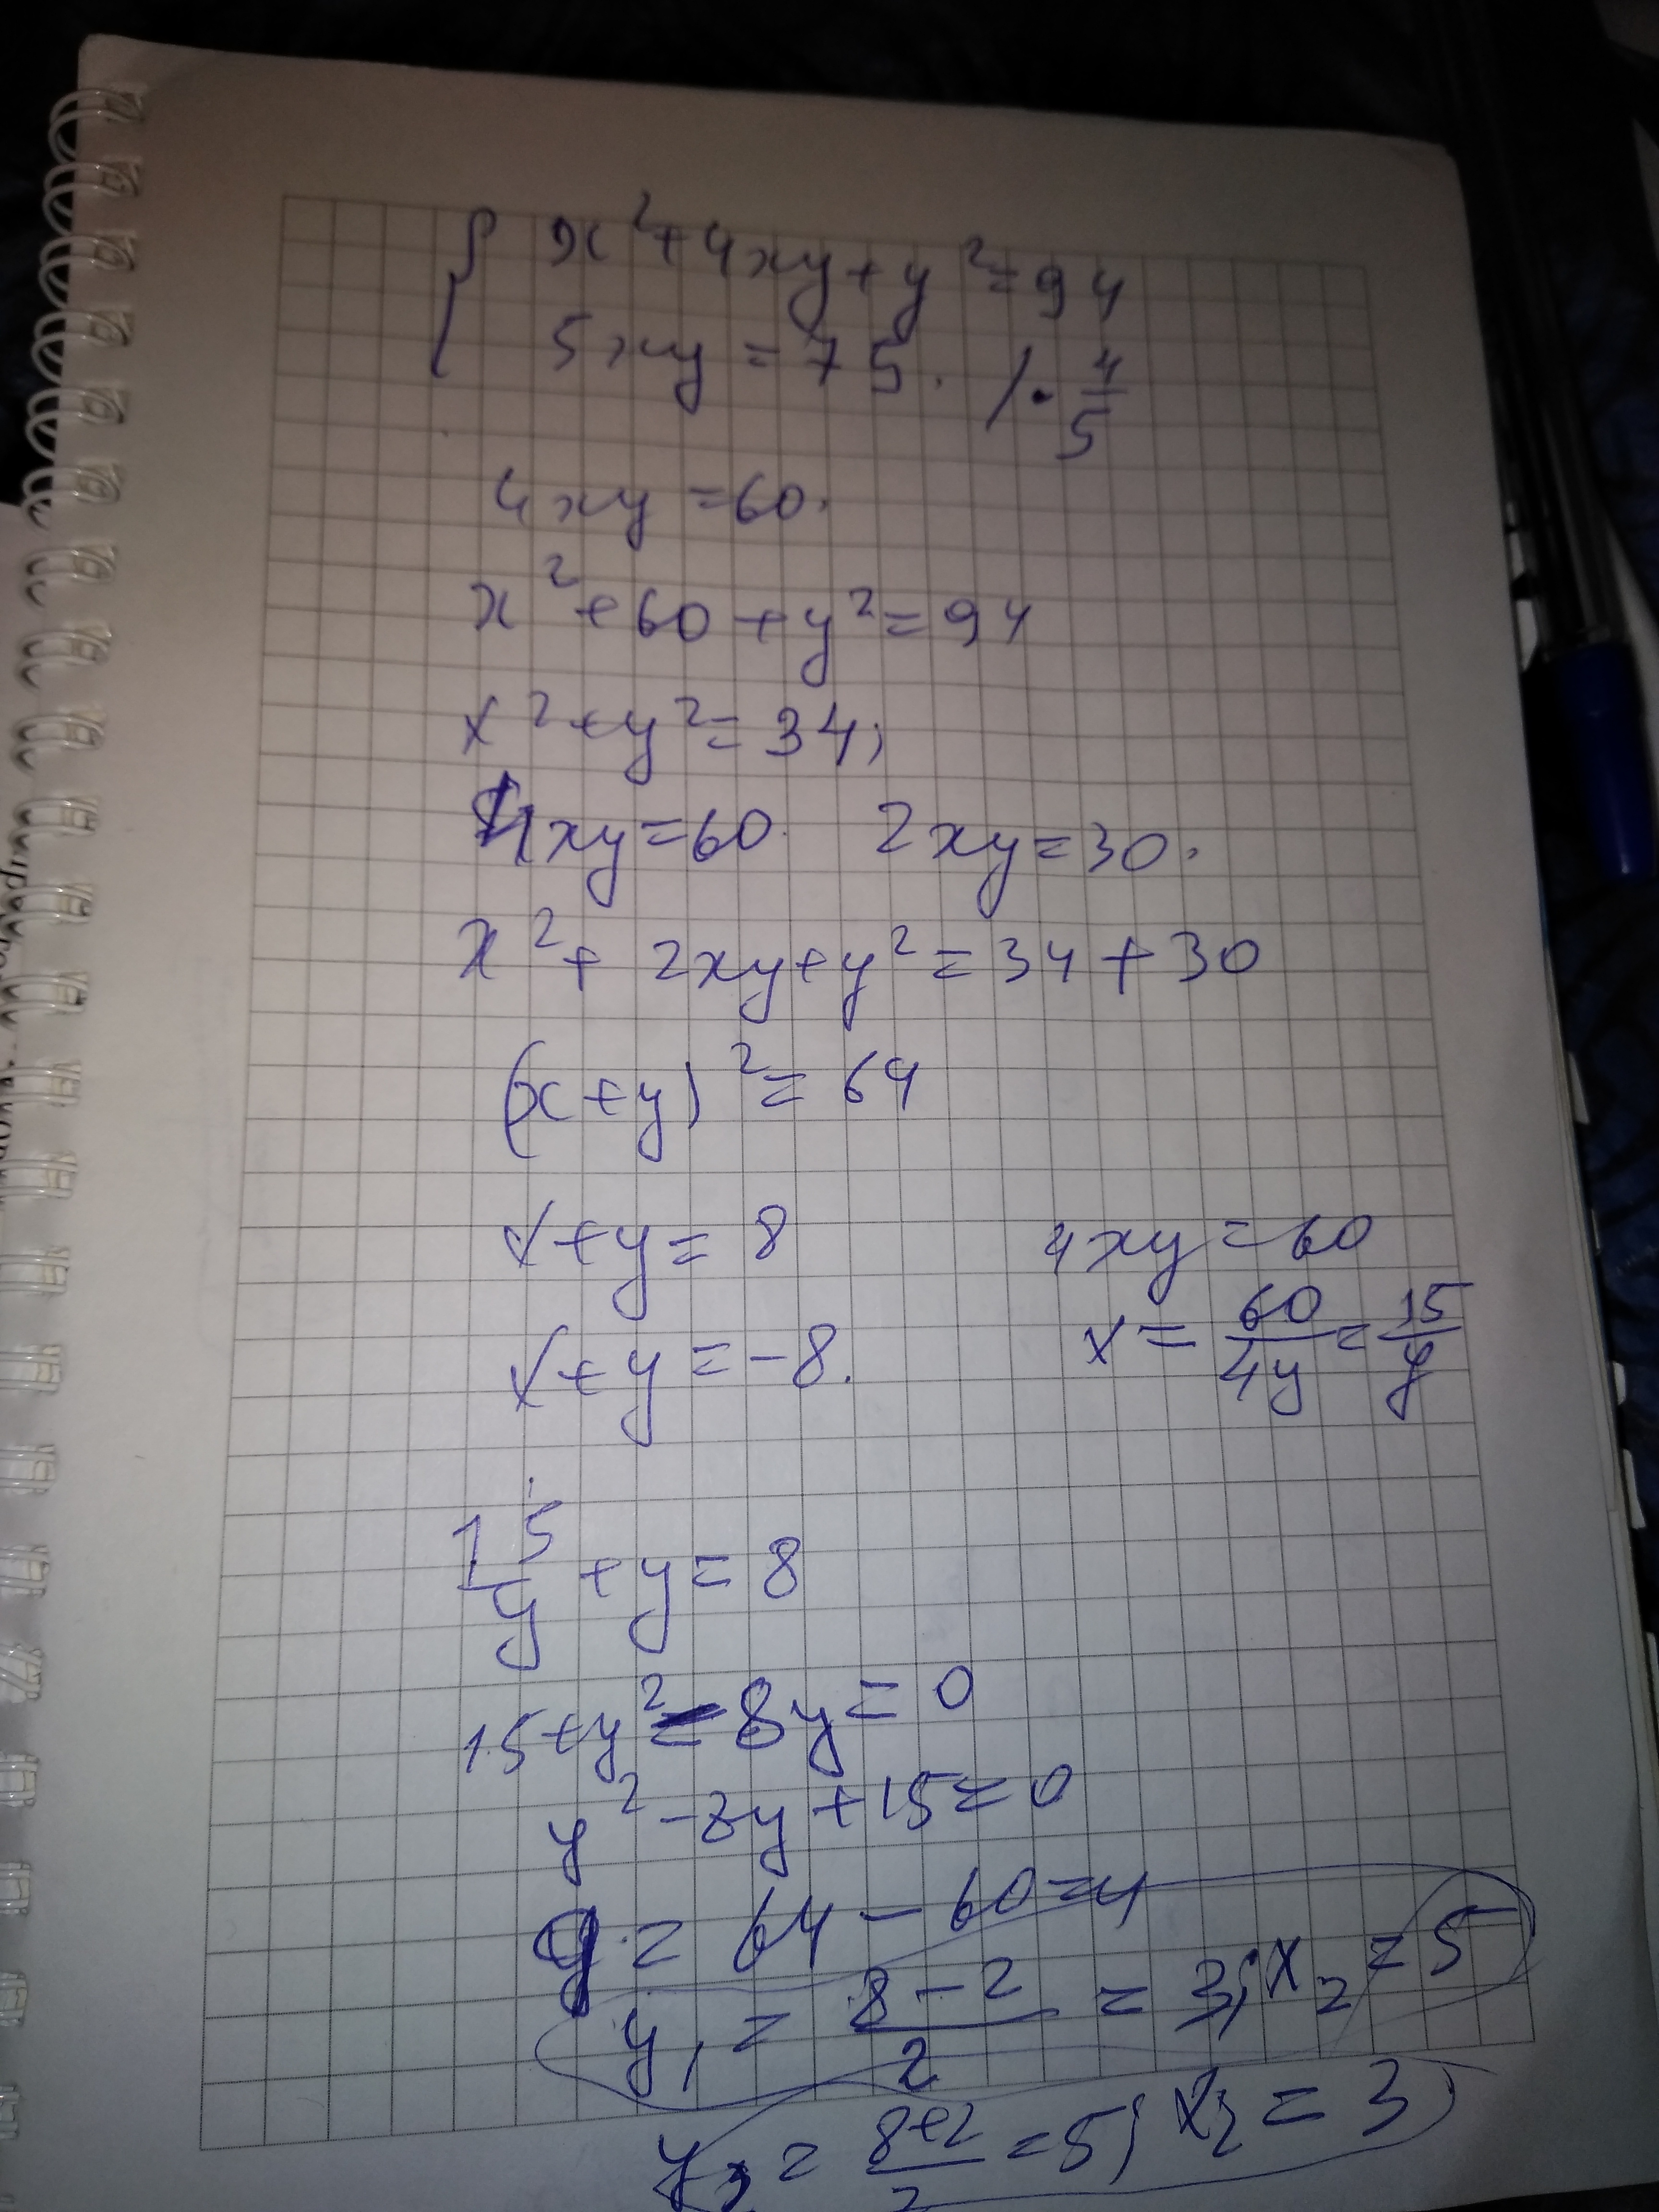 { x² + 4xy + y² = 94
5xy = 75. / · 4/5
4xy = 60.
x² + 60 + y² = 94
x² + y² = 34;
4xy = 60. 2xy = 30.
x² + 2xy + y² = 34 + 30
(x + y)² = 64
x + y = 8
4xy = 60
x + y = -8.
x = 60/4y = 15/y
15/y + y = 8
15 + y² - 8y = 0
y² - 8y + 15 = 0
= 64 - 60 = 4
y₁ = (8 - 2)/2 = 3; x₂ = 5
y₂ = (8 + 2)/2 = 5; x₂ = 3